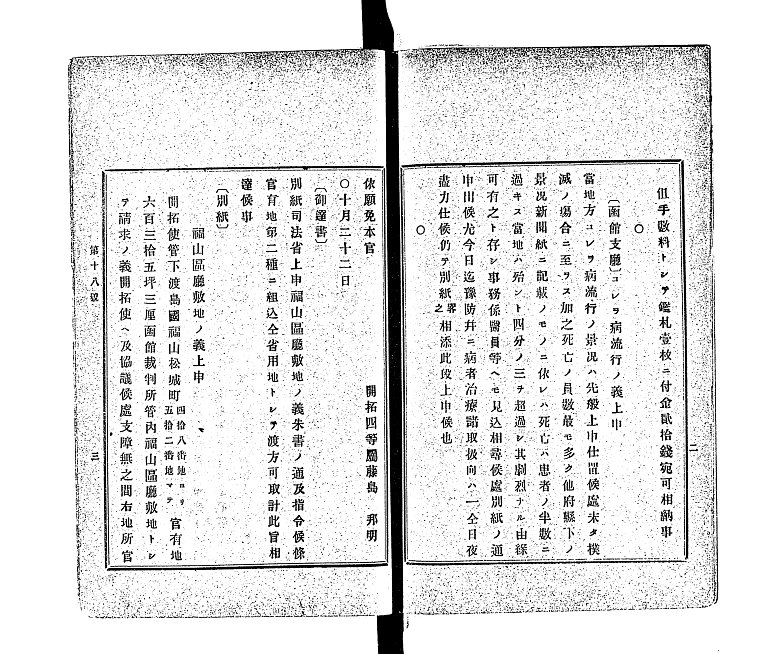 但手數料トシテ鑑札壹枚ニ付金貳拾錢宛可相納事
〇
〔函館支廳〕コレラ病流行ノ義上申
當地方コレラ病流行ノ景況ハ先般上申仕置候處未タ撲
滅ノ塲合ニ至ラス加之死亡ノ員數最モ多ク他府縣下ノ
景況新聞紙ニ記載ノモノニ依レハ死亡ハ患者ノ半數ニ
過キス當地ハ殆ント四分ノ三ヲ超過シ其劇烈ナル由縁
可有之ト存シ事務係醫員等ヘモ見込相尋候處別紙ノ通
申出候尤今日迄豫防幷ニ病者治療諸取扱向ハ一仝日夜
盡力仕候仍テ別紙畧之相添此段上申候也
〇
二
依願免本官
開拓四等屬藤島 邦明
〇十月二十二日
〔御達書〕
別紙司法省上申福山區廳敷地ノ義朱書ノ通及指令候條
官有地第二種ニ組込仝省用地トシテ渡方可取計此旨相
達候事
〔別紙〕
福山區廳敷地ノ義上申
開拓使管下渡島國福山松城町四拾八番地ヨリ五拾二番地マテ官有地
六百三拾五坪三厘函館裁判所管内福山區廳敷地トシ
テ請求ノ義開拓使ヘ及協議候處支障無之間右地所官
第十八號
三